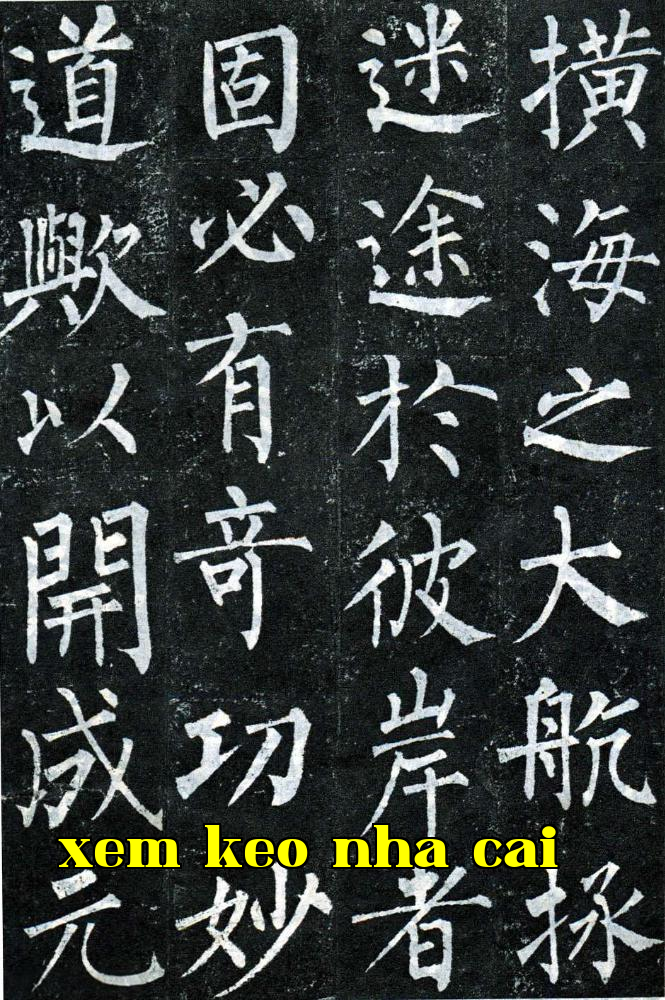 撗海之大航拯
迷途於彼岸者
固必有竒功妙
道歟以開成元
xem keo nha cai